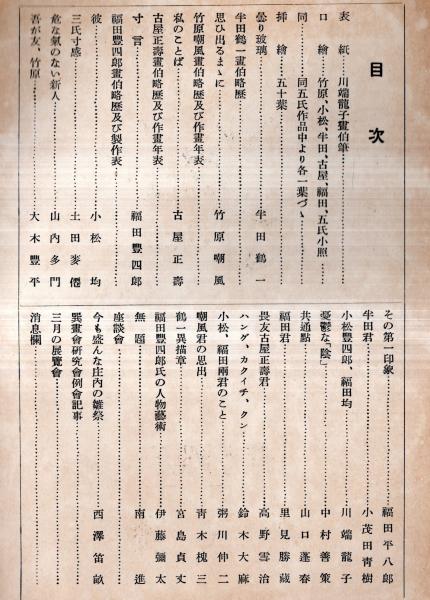 目次
表紙……川端龍子畫伯筆
口繪……竹原、小松、半田、古屋、福田、五氏小照
同……同五氏作品中より各一葉づゝ
挿繪……五十葉
曇り玻璃……半田鶴一
半田鶴一畫伯略歷
思ひ出るまゝに……竹原嘲風
竹原嘲風畫伯略歷及び作畫年表
私のことば……古屋正壽
古屋正壽畫伯略歷及び作畫年表
寸言……福田豐四郎
福田豐四郎畫伯略歷及び製作表
彼……小松均
三氏寸感……土田麥僊
危な氣のない新人……山內多門
吾が友、竹原……大木豐平
その第一印象……福田平八郎
半田君……小茂田靑樹
小松豐四郎、福田均……川端龍子
憂鬱な「陰」……中村善策
共通點……山口蓬春
福田君……里見勝藏
畏友古屋正壽君……高野雪治
ハング、カクイチ、クン……鈴木大麻
小松、福田兩君のこと……粥川伸二
嘲風君の思出……靑木槐三
鶴一異描章……宮島貞丈
福田豐四郎氏の人物藝術……伊藤彌太
無題……南進
座談會……
今も盛んな庄內の雛祭……西澤笛畝
巽畫會硏究會例會記事……
三月の展覽會……
消息欄……